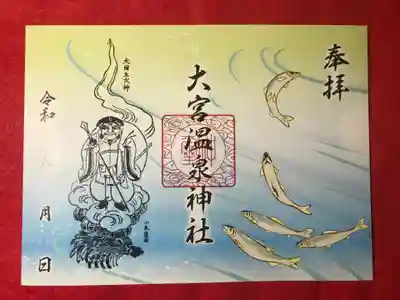 奉拝
大宮温泉神社
大国主大神
令和 月 日